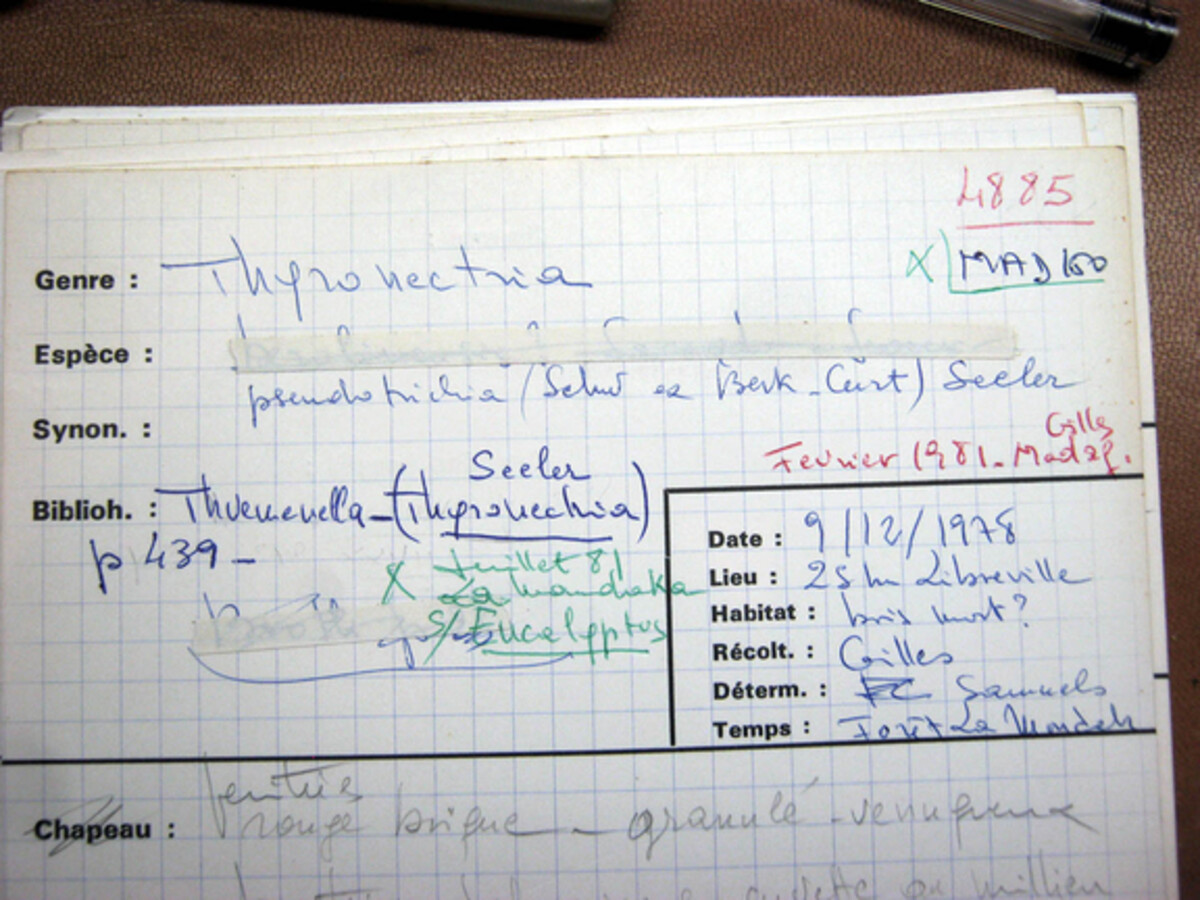 4885
Genre : Thyronectria
X MAD 160
Espèce :
pseudotrichia (Schw ex Berk_Curt) Seeler
Synon. :
Gilles
Fevrier 1981_Madag.
Seeler
Biblioh. : Thuemenella_(Thyronectria)
p 439_
X Juillet 81
La Mandraka
S/Eucalyptus
Date : 9/12/1978
Lieu : 25 km Libreville
Habitat : bois mort?
Récolt. : Gilles
Déterm. : Samuels
Temps : Forêt La Mondah
Perithès
Chapeau : rouge brique _ granulé _ verruqueux
cuvette au millieu